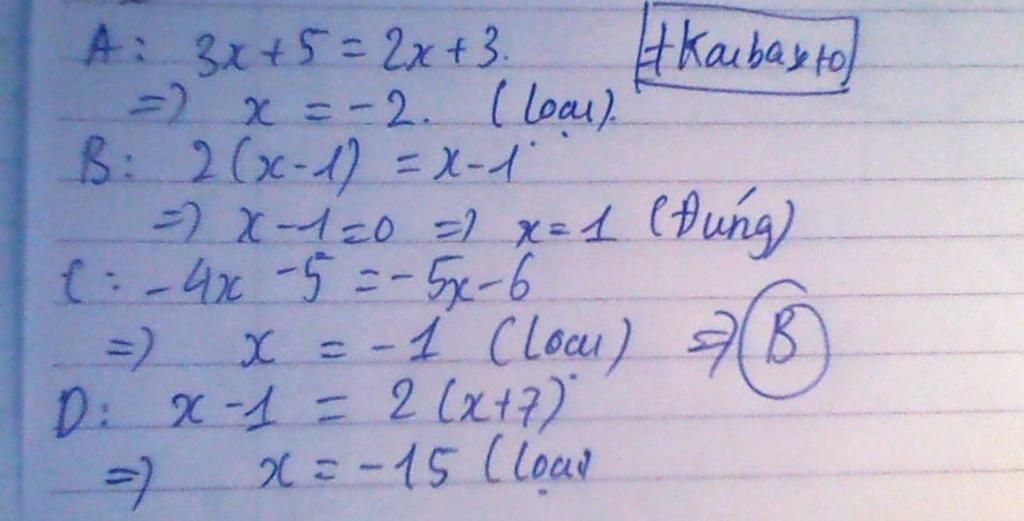 A: 3x+5=2x+3.
=> x = -2. (loại).
B: 2(x-1) = x-1
=> x-1=0 => x=1 (Đúng)
C: -4x -5 =-5x-6
=> x = -1 (loại) => B
D: x-1 = 2(x+7)
=> x = -15 (loại